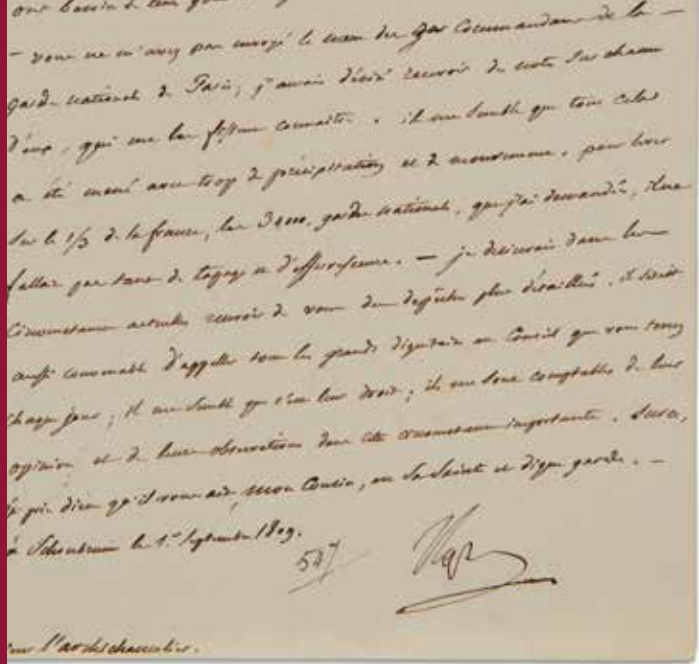 ont besoin de
— vous ne m'avez pas envoyé le nom des Commandans de la —
garde nationale de Paris; j'aurais désiré recevoir des notes sur chacun
d'eux, qui me les fissent connaitre. il me semble que tout cela
a été mené avec trop de précipitation et de mouvement. pour lever
sur le 1/3 de la france, les 3 gardes nationales, que j'ai demandés, il ne
fallait pas tant de tapage et d'effervescence. — je desirerais dans les
Circonstances actuelles recevoir de vous des dépêches plus détaillées. il serait
aussi convenable d'appeller tous les grands dignitaires au Conseil que vous tenez
chaque jour; il me semble que c'est leur droit; ils me sont comptables de leur
opinion et de leurs observations dans cette circonstance importante. Sur ce,
je prie dieu qu'il vous ait, mon Cousin, en Sa Sainte et digne garde. —
à Schonbrunn le 1er Septembre 1809.
507
Nap
l'archichancelier.